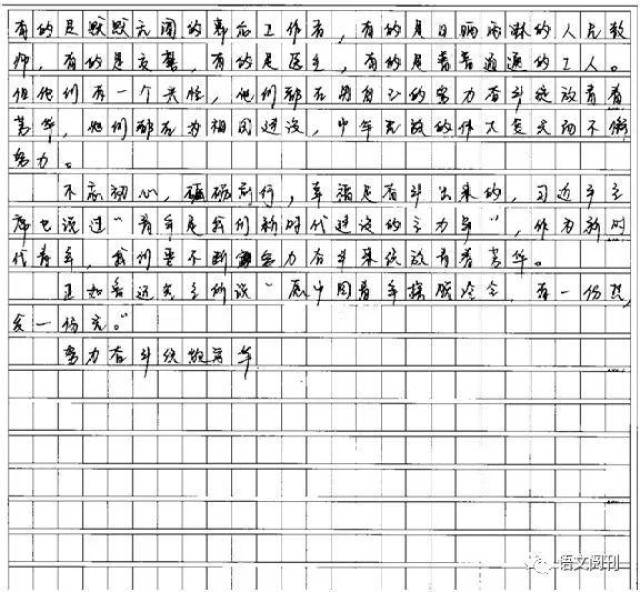 有的是默默无闻的志工作者，有的是日晒雨淋的人民教
师，有的是交警，有的是医生，有的是普普通通的工人。
但他们有一个共性，他们都在用自己的努力奋斗绽放青春
芳华，他们都在为祖国建设，中华民族的伟大复兴而不懈
努力。
不忘初心，砥砺前行，幸福是奋斗出来的，习近平主
席也说过“青年是我们新时代建设的主力军”，作为新时
代青年，我们要不断努力奋斗来绽放青春芳华。
正如鲁迅先生所说“愿中国青年摆脱冷气，有一份热，
发一份光。”
努力奋斗绽放芳华
语文阅刊